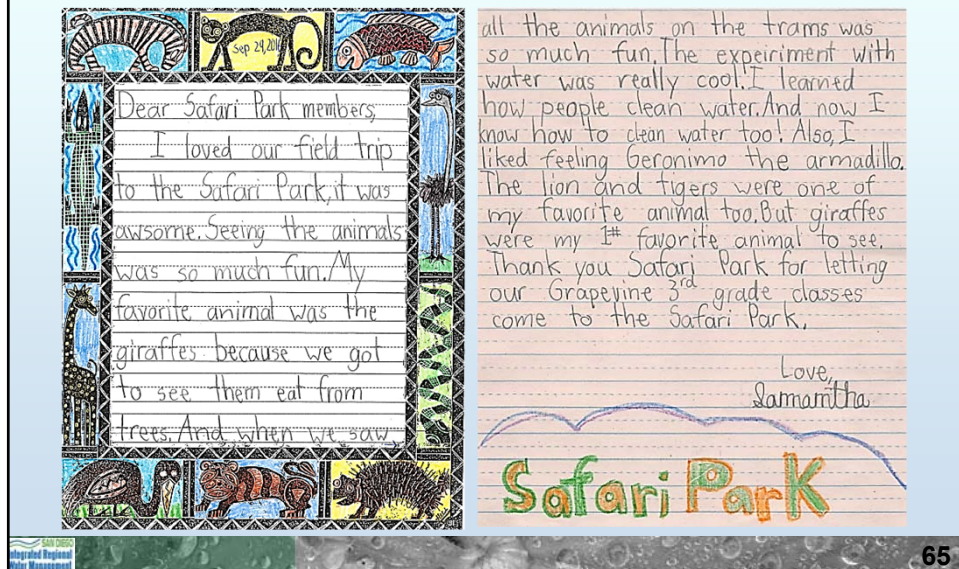 Sep 29, 2016
Dear Safari Park members,
I loved our field trip
to the Safari Park, it was
awsome. Seeing the animals
was so much fun. My
favorite animal was the
giraffes because we got
to see them eat from
trees. And when we saw
all the animals on the trams was
so much fun. The expeiriment with
water was really cool! I learned
how people clean water. And now I
know how to clean water too! Also, I
liked feeling Geronimo the armadillo.
The lion and tigers were one of
my favorite animal too. But giraffes
were my 1# favorite animal to see.
Thank you Safari Park for letting
our Grapevine 3rd grade classes
come to the Safari Park.
Love,
Samamtha
Safari Park
SAN DIEGO
Integrated Regional
Water Management
65